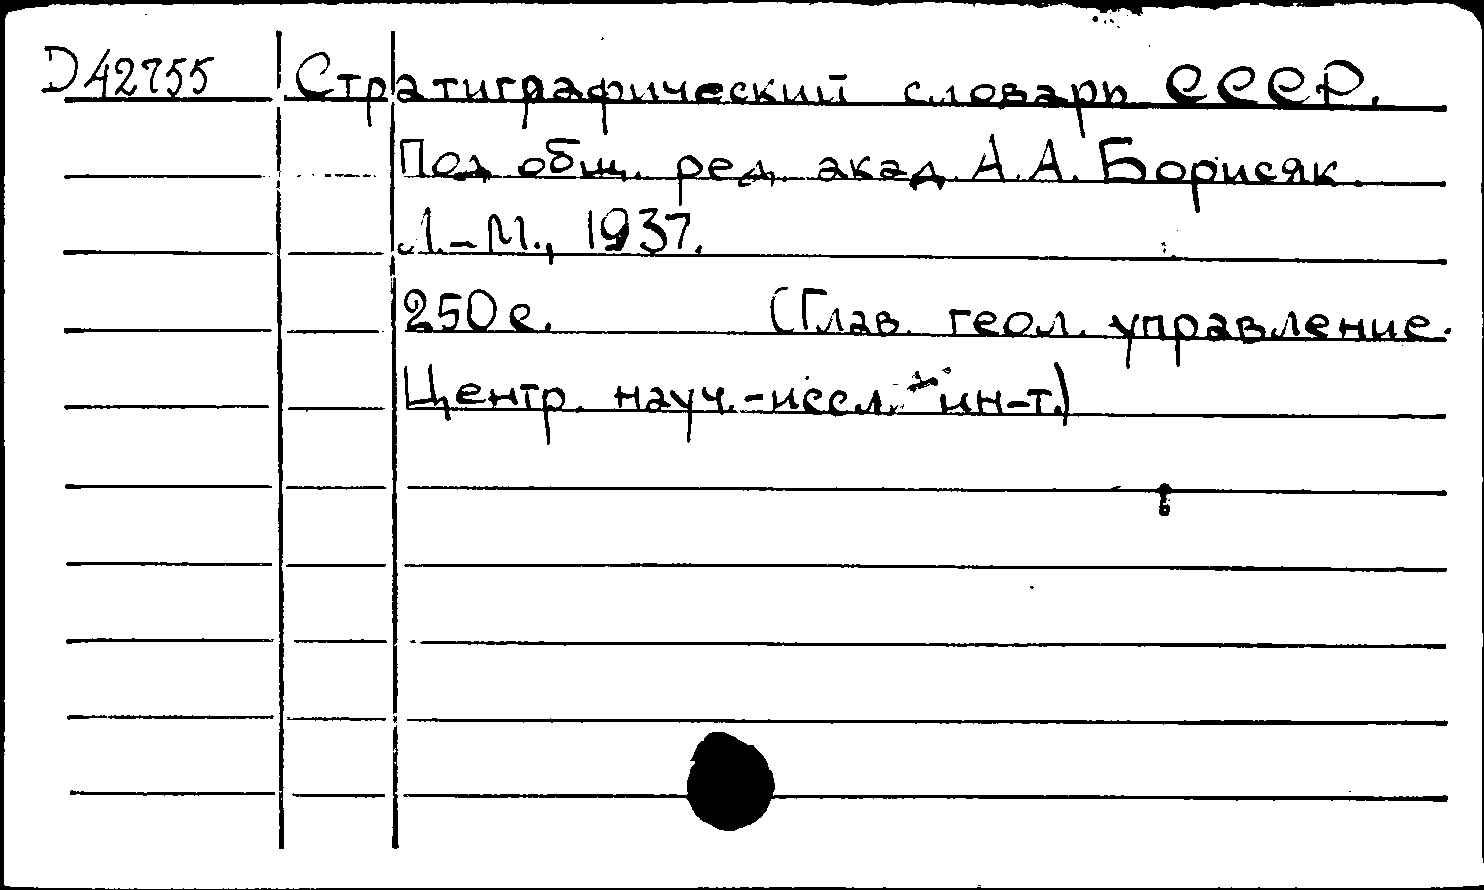 D42755 Стратиграфический словарь СССР.
Под общ. ред. акад. А.А. Борисяк.
Л.-М., 1937.
250 с. (Глав. геол. управление.
Центр. науч.-иссл. ин-т.)